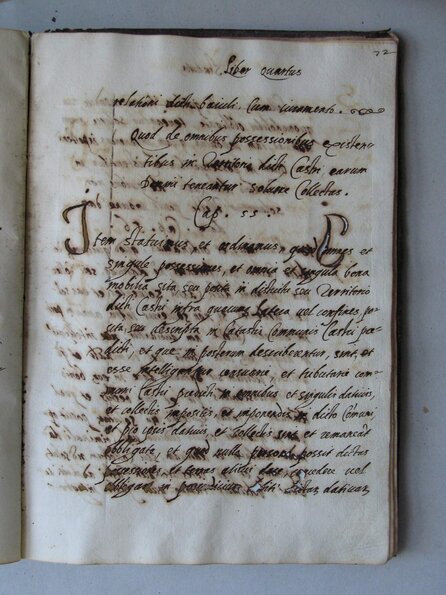 72
Liber Quartus
relationi dicti baiuli. Cum iuramento.
Quod de omnibus possessionibus existen
tibus in Territorio dicti Castri, earum
Domini teneantur solvere Collectas.
Cap. 55.
Item statuimus et ordinamus, quod omnes et
singule possessiones, et omnia et singula bona
mobilia sita seu posita in districtu seu Territorio
dicti Castri infra quecumque latera vel confines, po
sita seu descripta in Catastro Communis Castri pre
dicti, et que in posterum describerentur, sint, et
esse intelligantur
muni Castri predicti in omnibus et singulis dativis,
et collectis impositis, et imponendis in dicto Comuni,
et pro ipsis dativis et collectis sint et remaneat
obligate, et quod nulla persona possit dictas
possessiones et terras alicui dare concedere vel
obligare in dativam